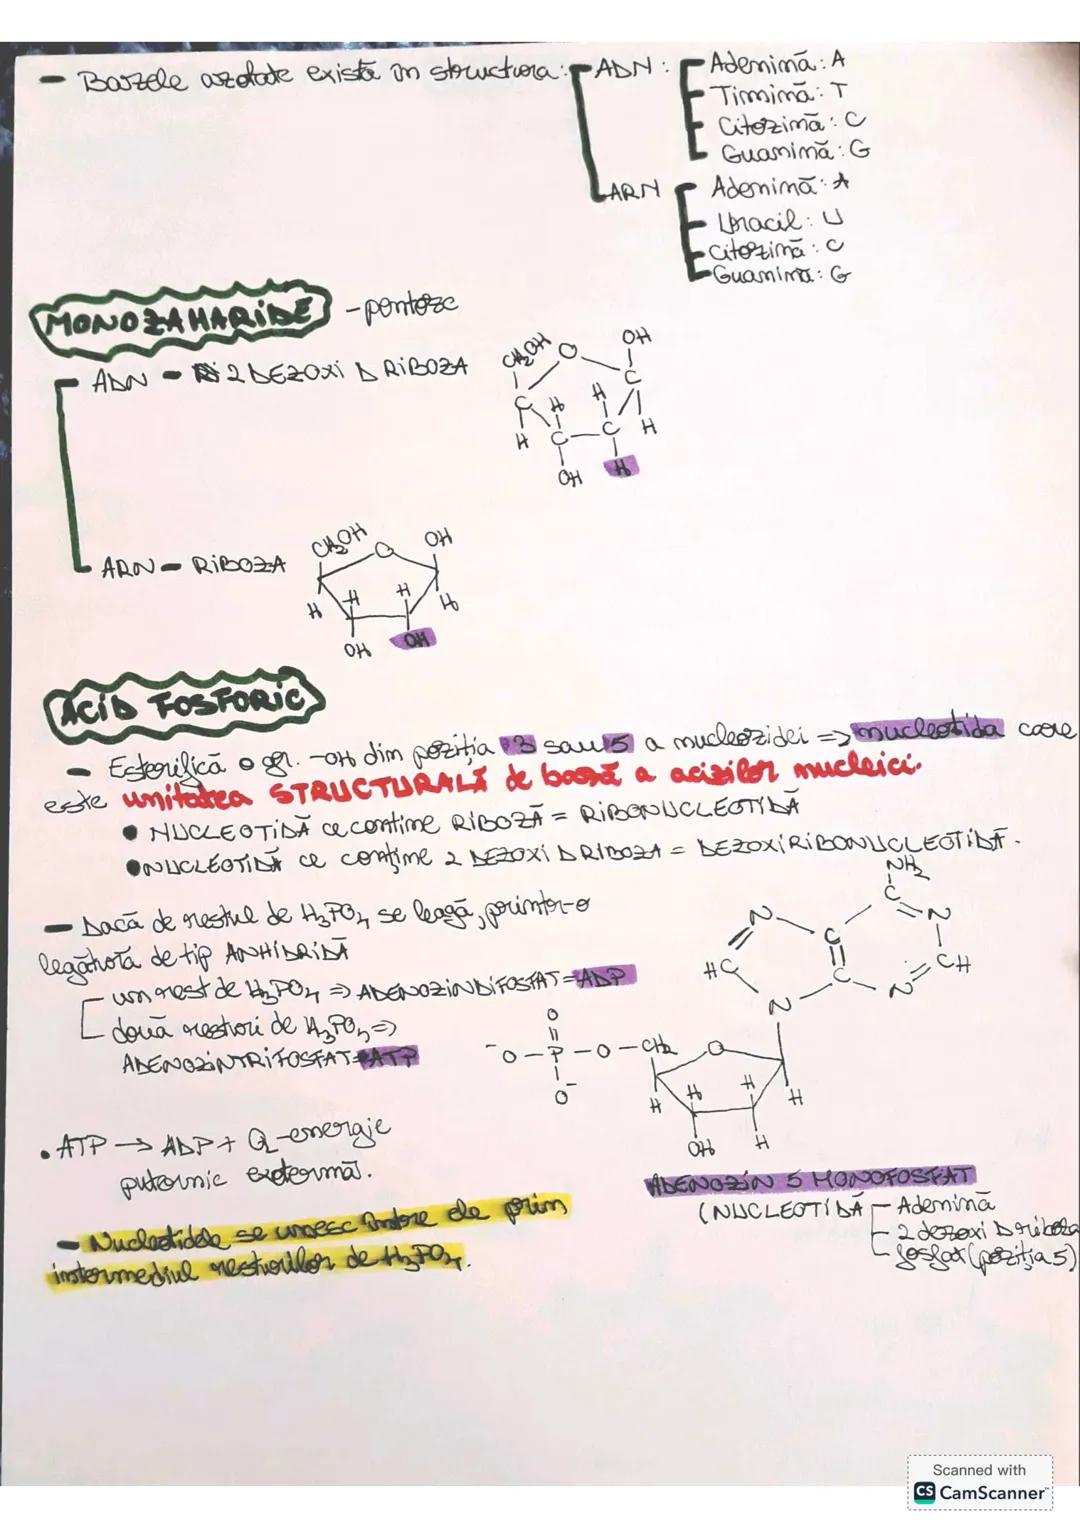 - Bazele azotate există în structura: ADN: Adenină: A
Timină: T
Citozină: C
Guanină: G
ARN Adenină: A
Uracil: U
Citozină: C
Guanină: G
MONOZAHARIDE - pentoze
ADN - 2 DEZOXI D RIBOZA
CH2OH O OH
C C
H H H H
C C
OH H
ARN - RIBOZA
CH2OH O OH
H H H H
OH OH
ACID FOSFORIC
- Esterifică o gr. -OH din poziția 3 sau 5 a nucleozidei => nucleotida care
este unitatea STRUCTURALĂ de bază a acizilor nucleici.
• NUCLEOTIDĂ ce conține RIBOZĂ = RIBONUCLEOTIDĂ
• NUCLEOTIDĂ ce conține 2 DEZOXI D RIBOZA = DEZOXIRIBONUCLEOTIDĂ.
- Dacă de restul de H3PO4 se leagă, printr-o
legătură de tip ANHIDRIDĂ
un rest de H3PO4 => ADENOZINDIFOSFAT = ADP
două resturi de H3PO4 =>
ADENOZINTRIFOSFAT = ATP
NH2
C
N C N
HC C CH
N N
O
-O - P - O - CH2 O
O-
H H H H
OH H
• ATP → ADP + Q - energie
puternic exotermă.
ADENOZIN 5 MONOFOSFAT
(NUCLEOTIDĂ Adenină
2 dezoxi D riboza
fosfat (poziția 5)
- Nucleotidele se unesc între ele prin
intermediul resturilor de H3PO4.
Scanned with
CS CamScanner